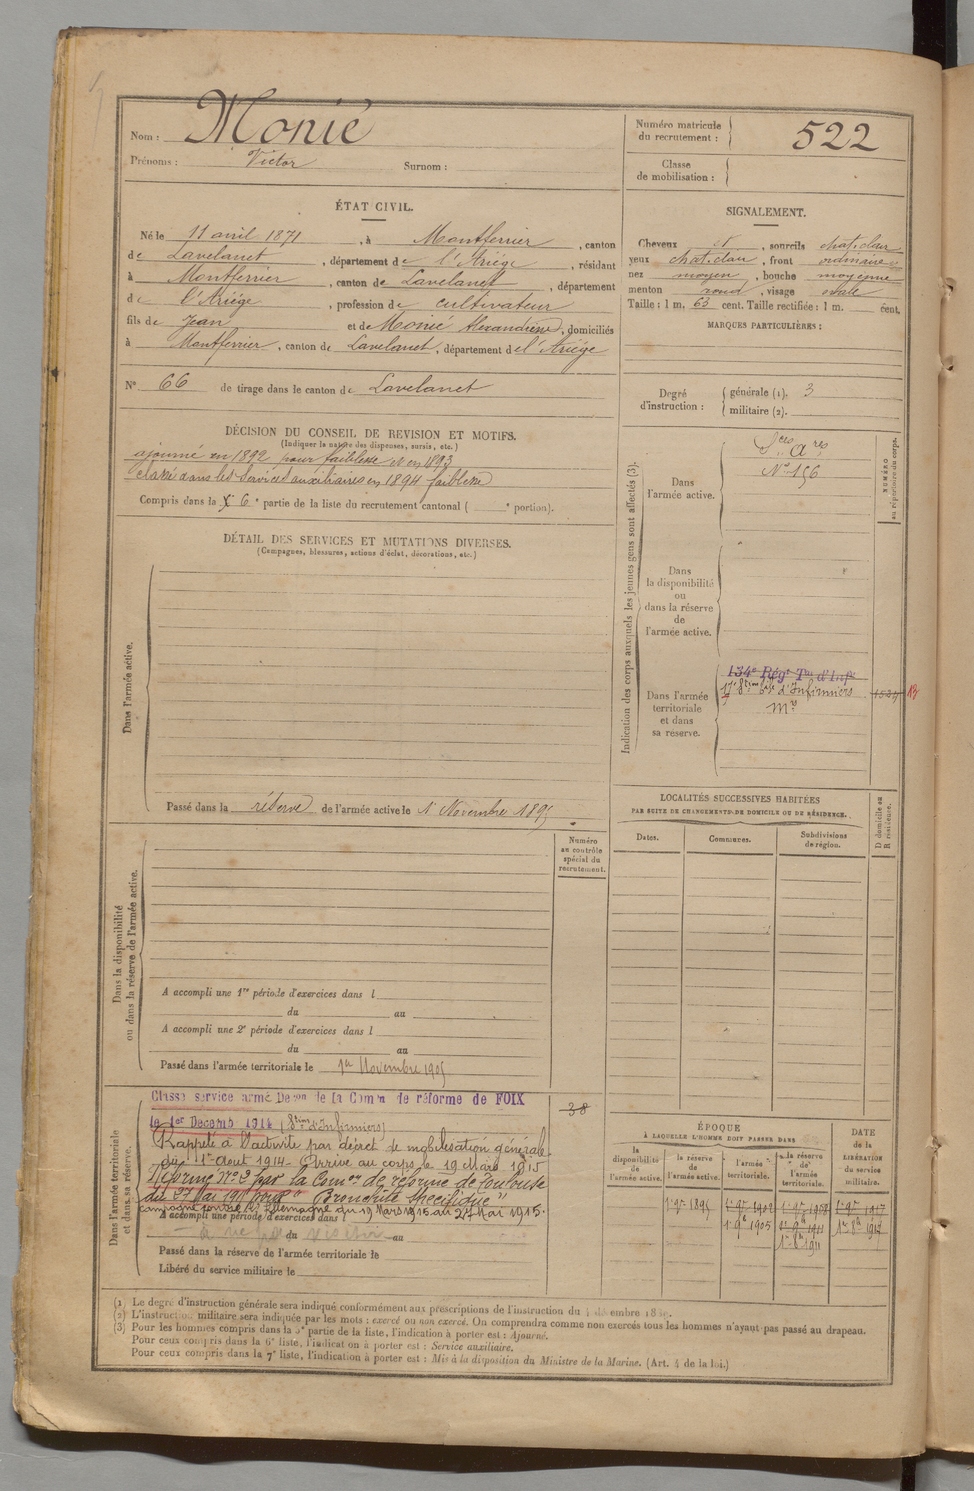 Nom : Monié
Prénoms : Victor Surnom :
Numéro matricule du recrutement : 522
Classe de mobilisation :
ÉTAT CIVIL.
Né le 11 avril 1871, à Montferrier, canton
de Lavelanet, département de l'Ariége, résidant
à Montferrier, canton de Lavelanet, département
de l'Ariége, profession de cultivateur
fils de Jean et de Monié Alexandrine, domiciliés
à Montferrier, canton de Lavelanet, département de l'Ariége
N° 66 de tirage dans le canton de Lavelanet
SIGNALEMENT.
Cheveux et, sourcils chat. clair
yeux chat. clair, front ordinaire
nez moyen, bouche moyenne
menton rond, visage ovale
Taille : 1 m. 63 cent. Taille rectifiée : 1 m. cent.
MARQUES PARTICULIÈRES :
Degré d'instruction : générale (1). 3
militaire (2).
DÉCISION DU CONSEIL DE REVISION ET MOTIFS.
(Indiquer la nature des dispenses, sursis, etc.)
ajourné en 1892 pour faiblesse et en 1893
classé dans les Services auxiliaires en 1894 faiblesse
Compris dans la 6e partie de la liste du recrutement cantonal ( e portion).
DÉTAIL DES SERVICES ET MUTATIONS DIVERSES.
(Campagnes, blessures, actions d'éclat, décorations, etc.)
Dans l'armée active.
Passé dans la réserve de l'armée active le 1 Novembre 1895
Indication des corps auxquels les jeunes gens sont affectés (3).
NUMÉRO au répertoire du corps.
Dans l'armée active.
Sces ares
N° 156
Dans la disponibilité ou dans la réserve de l'armée active.
Dans l'armée territoriale et dans sa réserve.
134e Régt Tal d'Infie
17e Son d'Infirmiers
mres
LOCALITÉS SUCCESSIVES HABITÉES
PAR SUITE DE CHANGEMENTS DE DOMICILE OU DE RÉSIDENCE.
Dates. Communes. Subdivisions de région.
D domicile ou R résidence.
Numéro au contrôle spécial du recrutement.
Dans la disponibilité ou dans la réserve de l'armée active.
A accompli une 1re période d'exercices dans l
du au
A accompli une 2e période d'exercices dans l
du au
Passé dans l'armée territoriale le 1er Novembre 1905
Dans l'armée territoriale et dans sa réserve.
Classé service armé Don de la Comon de réforme de FOIX
le 1er Decemb 1914 (Son d'Infirmiers)
38
Rappelé à l'activité par décret de mobilisation générale
du 1er Août 1914 - Arrivé au corps le 19 Mars 1915
Réformé N° 2 par la Comon de réforme de Toulouse
du 27 Mai 1915 pour "Bronchite spécifique"
campagne contre l'Allemagne du 19 Mars 1915 au 27 Mai 1915.
A accompli une période d'exercices dans l
du au
Passé dans la réserve de l'armée territoriale le
Libéré du service militaire le
ÉPOQUE
À LAQUELLE L'HOMME DOIT PASSER DANS
la disponibilité de l'armée active.
la réserve de l'armée active.
l'armée territoriale.
la réserve de l'armée territoriale.
DATE de la LIBÉRATION du service militaire.
1er 9bre 1895
1er 9bre 1905
(1) Le degré d'instruction générale sera indiqué conformément aux prescriptions de l'instruction du
(2) L'instruction militaire sera indiquée par les mots : exercé ou non exercé. On comprendra comme non exercés tous les hommes n'ayant pas passé au drapeau.
(3) Pour les hommes compris dans la 5e partie de la liste, l'indication à porter est : Ajourné.
Pour ceux compris dans la 6e liste, l'indication à porter est : Service auxiliaire.
Pour ceux compris dans la 7e liste, l'indication à porter est : Mis à la disposition du Ministre de la Marine. (Art. 4 de la loi.)